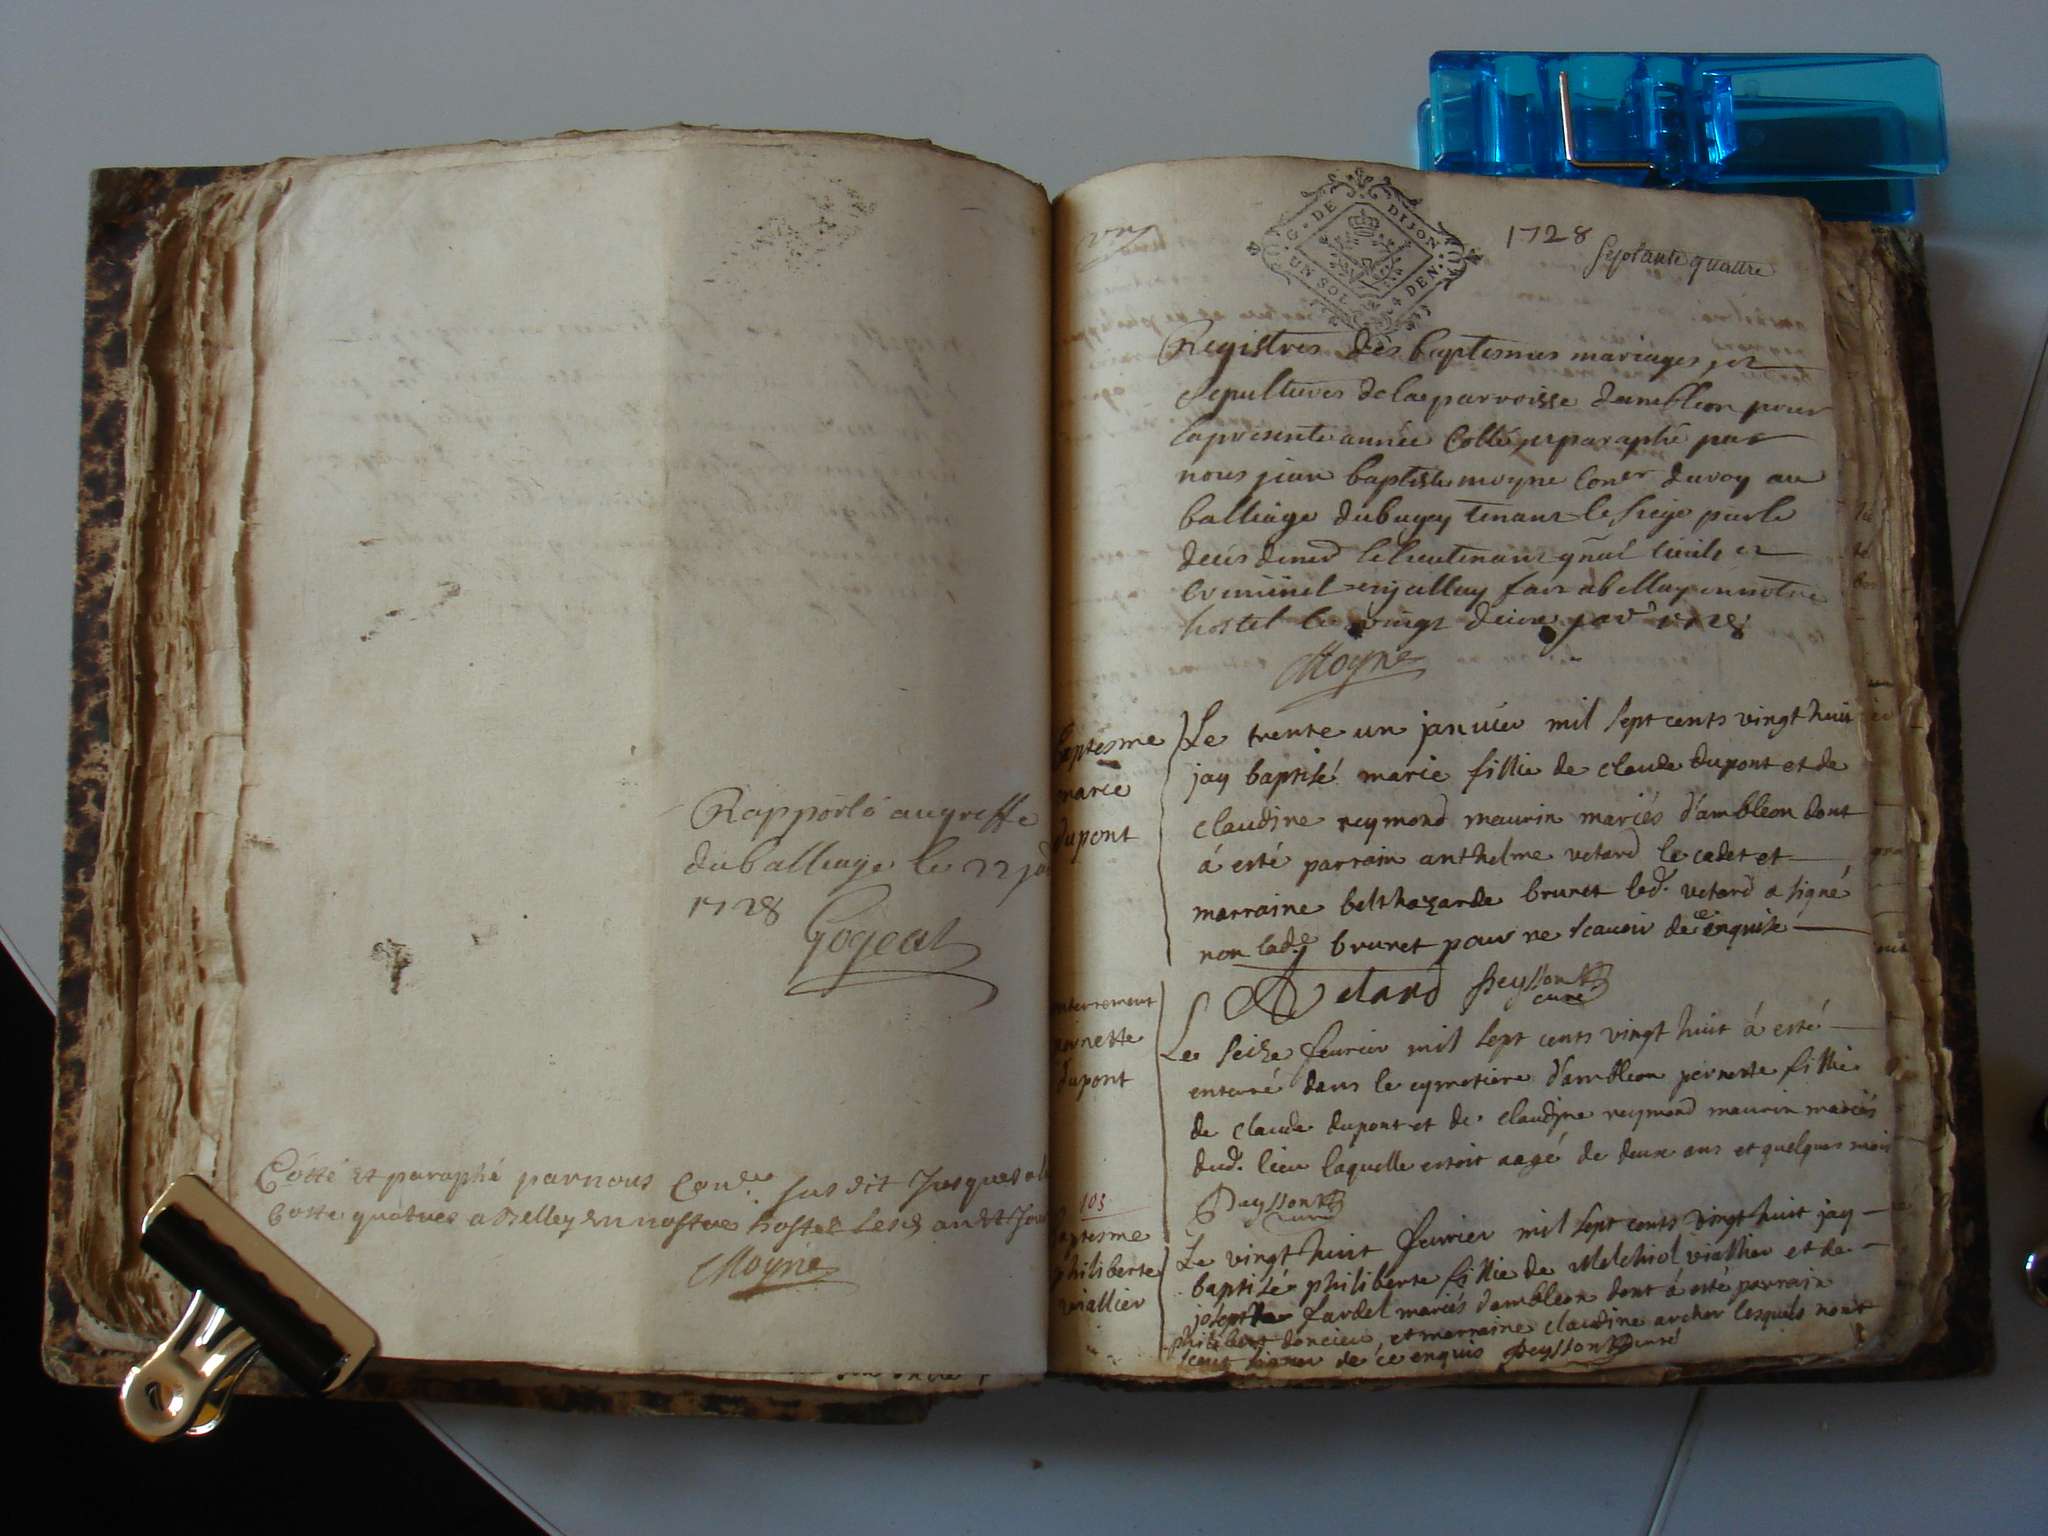 Rapporté au greffe
du balliage le 22
1728
Gogeat
Cotté et paraphé par nous susdit jusques a la
cotte quatres a Belley en nostre hostel les an et jour
Moyne
G. DE DIJON
UN SOL 4 DEN.
1728
septante quattre
Registres des baptesmes mariages et
sepultures de la parroisse dambleon pour
la presente année cotté et paraphé par
nous jean baptiste moyne coner du roy au
balliage du bugey tenant le siege par le
deces de mr le lieutenant gñal civile et
criminel fait a belley en notre
hostel le vingt deux janr 1728
Moyne
baptesme
marie
dupont
Le trente un janvier mil sept cents vingt huit
jay baptisé marie fillie de claude dupont et de
claudine reymond maurin mariés d'ambleon dont
á esté parrain anthelme vetard le cadet et
marraine belthazarde brunet led. vetard a signé
non lad.e brunet pour ne scavoir de ce enquise
A Vetard Peysson curé
enterrement
pernette
dupont
Le seize fevrier mil sept cents vingt huit á esté
enterré dans le cymetiere d'ambleon pernette fillie
de claude dupont et de claudine reymond maurin mariés
dud. lieu laquelle estoit aagé de deux ans et quelques mois
Peysson curé
103
baptesme
philiberte
viallier
Le vingt huit fevrier mil sept cents vingt huit jay
baptisé philiberte fillie de Melchiol viallier et de
josepte fardel mariés d'ambleon dont á esté parrain
philibert doncieu, et marraine claudine archer lesquels n'ont
sceut signer de ce enquis Peysson curé